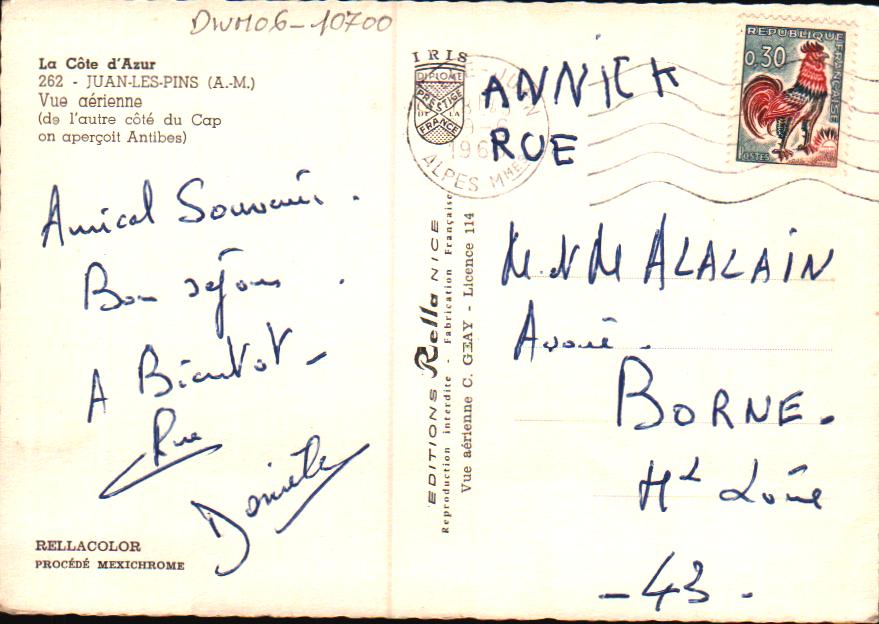 DWM06-10700
La Côte d'Azur
262 - JUAN-LES-PINS (A.-M.)
Vue aérienne
(de l'autre côté du Cap
on aperçoit Antibes)
Amical Souvenir.
Bon séjour.
A Bientot -
Rue
Danièle
RELLACOLOR
PROCÉDÉ MEXICHROME
EDITIONS Rella NICE
Reproduction interdite - Fabrication Française
Vue aérienne C. GEAY - Licence 114
IRIS
DIPLOME
PRESTIGE
DE LA
FRANCE
ALPES MMES
REPUBLIQUE FRANÇAISE
0,30
POSTES
ANNICK
RUE
ALALAIN
BORNE.
Hte Loire
- 43.